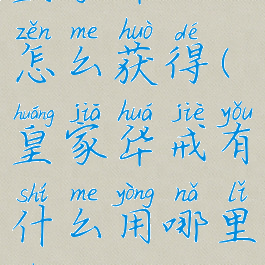 zěn me huò dé
怎么获得(
huáng jiā huá jiè yǒu
皇家华戒有
shí me yòng nǎ lǐ
什么用哪里